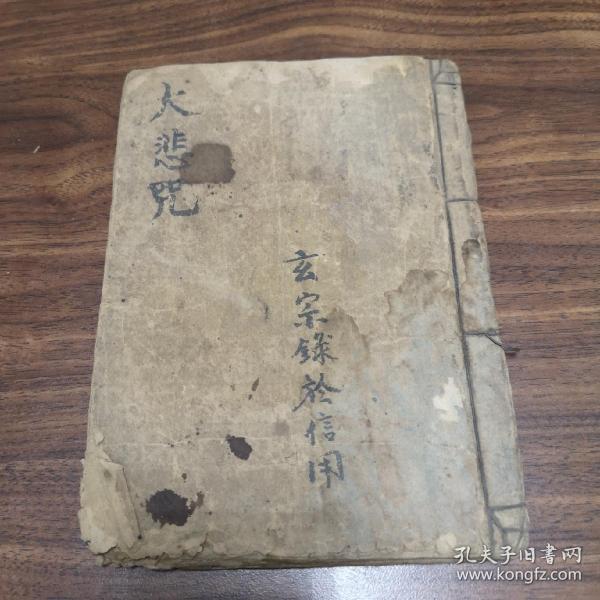 大悲咒
玄宗録於信用
孔夫子旧书网
www.kongfz.com